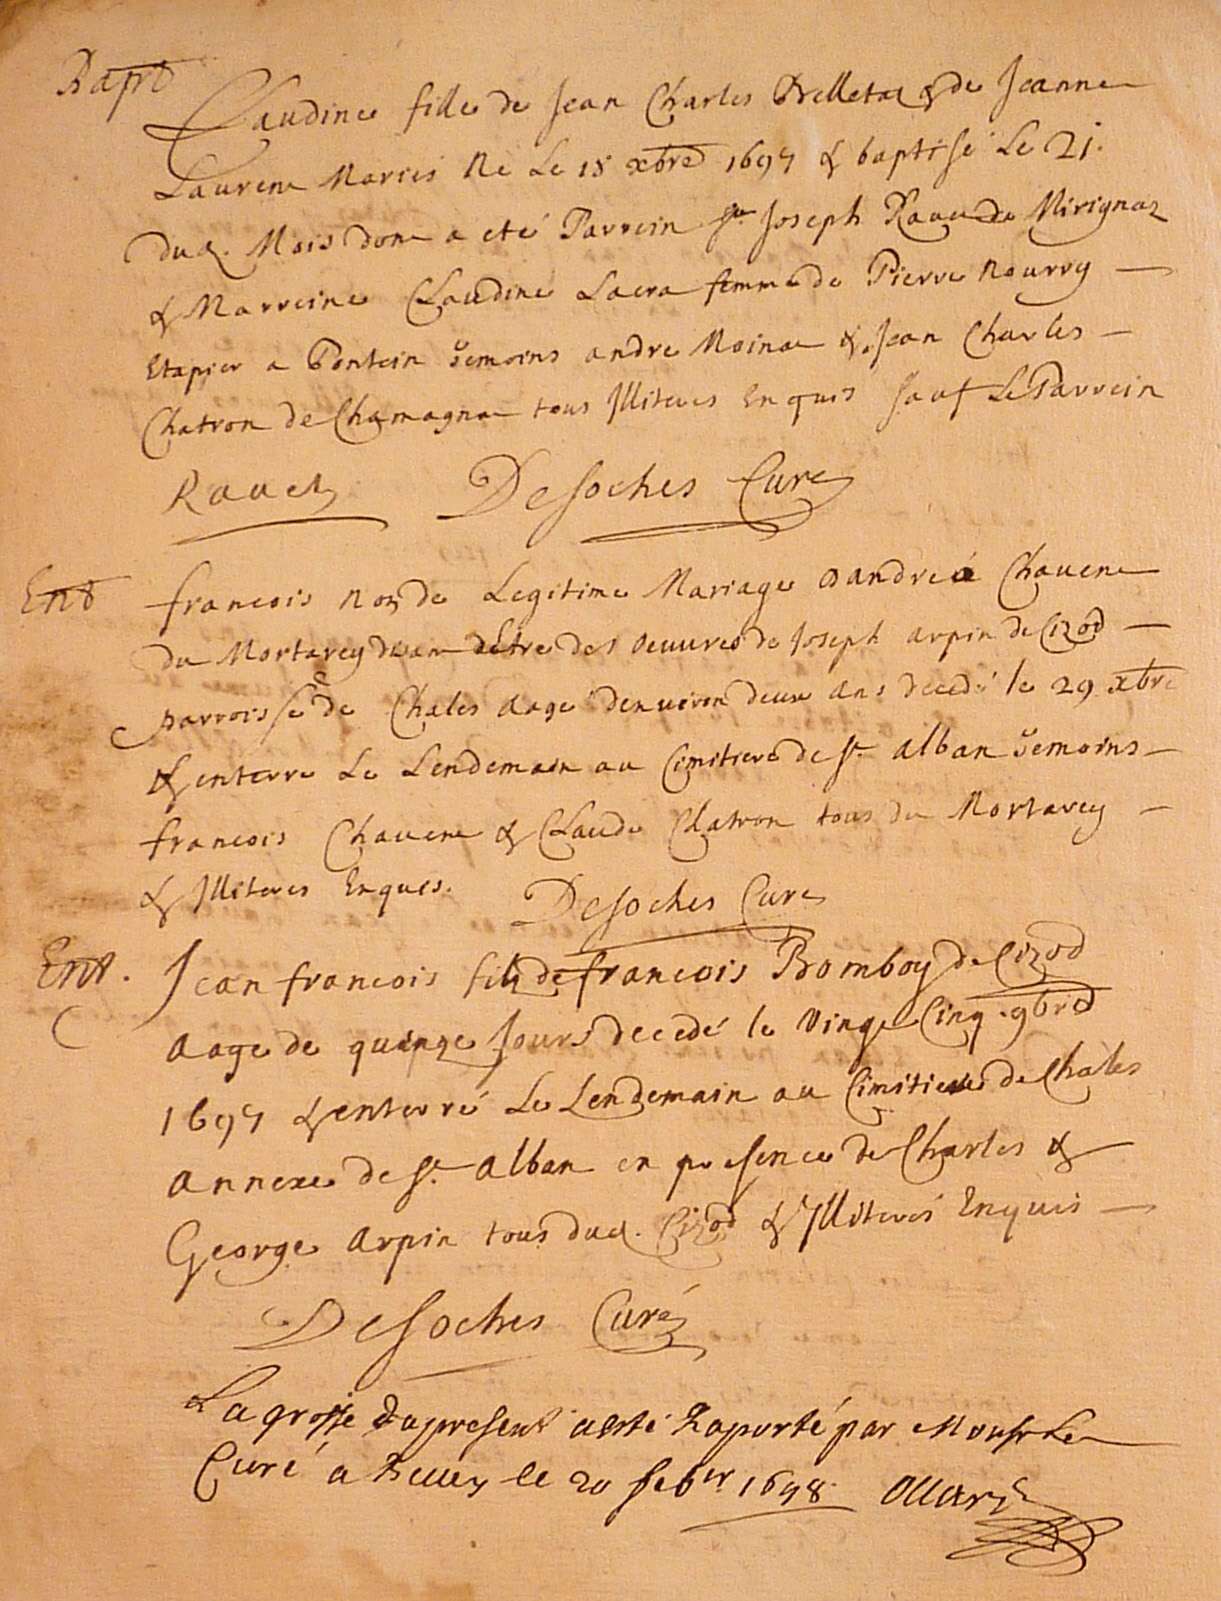 Bapt
Claudine fille de Jean Charles Pelletat & de Jeanne
Laurent Mariés Né Le 18 xbre 1697 & baptisé Le 21.
dud. Mois dont a eté Parrein Sr. Joseph Rauet de Mirignaz
& Marreine Claudine Lacra femme de Pierre Nourry
Etapier a Pontein temoins andre Moinat & Jean Charles
Chatron de Chamagnat tous Illiteres Enquis sauf Le Parrein
Rauet Desoches Curé
Ent
francois Noz de Legitime Mariage d'andre Chauent
du Mortarey deuant des oeuures de Joseph arpin de Cizod
parroisse de Chales aagé denuiron deux ans decedé le 29 xbre
& enterre Le Lendemain au Cimitiere de St. alban temoins
francois Chauent & Claude Chatron tous du Mortarey
& Illiteres Enquis. Desoches Curé
Ent.
Jean francois filz de francois Bomboy de Cizod
aagé de quinze Jours decedé le Vingt Cinq 9bre
1697 & enterré Le Lendemain au Cimitiere de Chales
annexe de St. alban en presence de Charles &
George arpin tous dud. Cizod & Illiterés Enquis
Desoches Curé
La grosse du present a esté Raporté par Monsr Le
Curé a Belley le 20 feber 1698